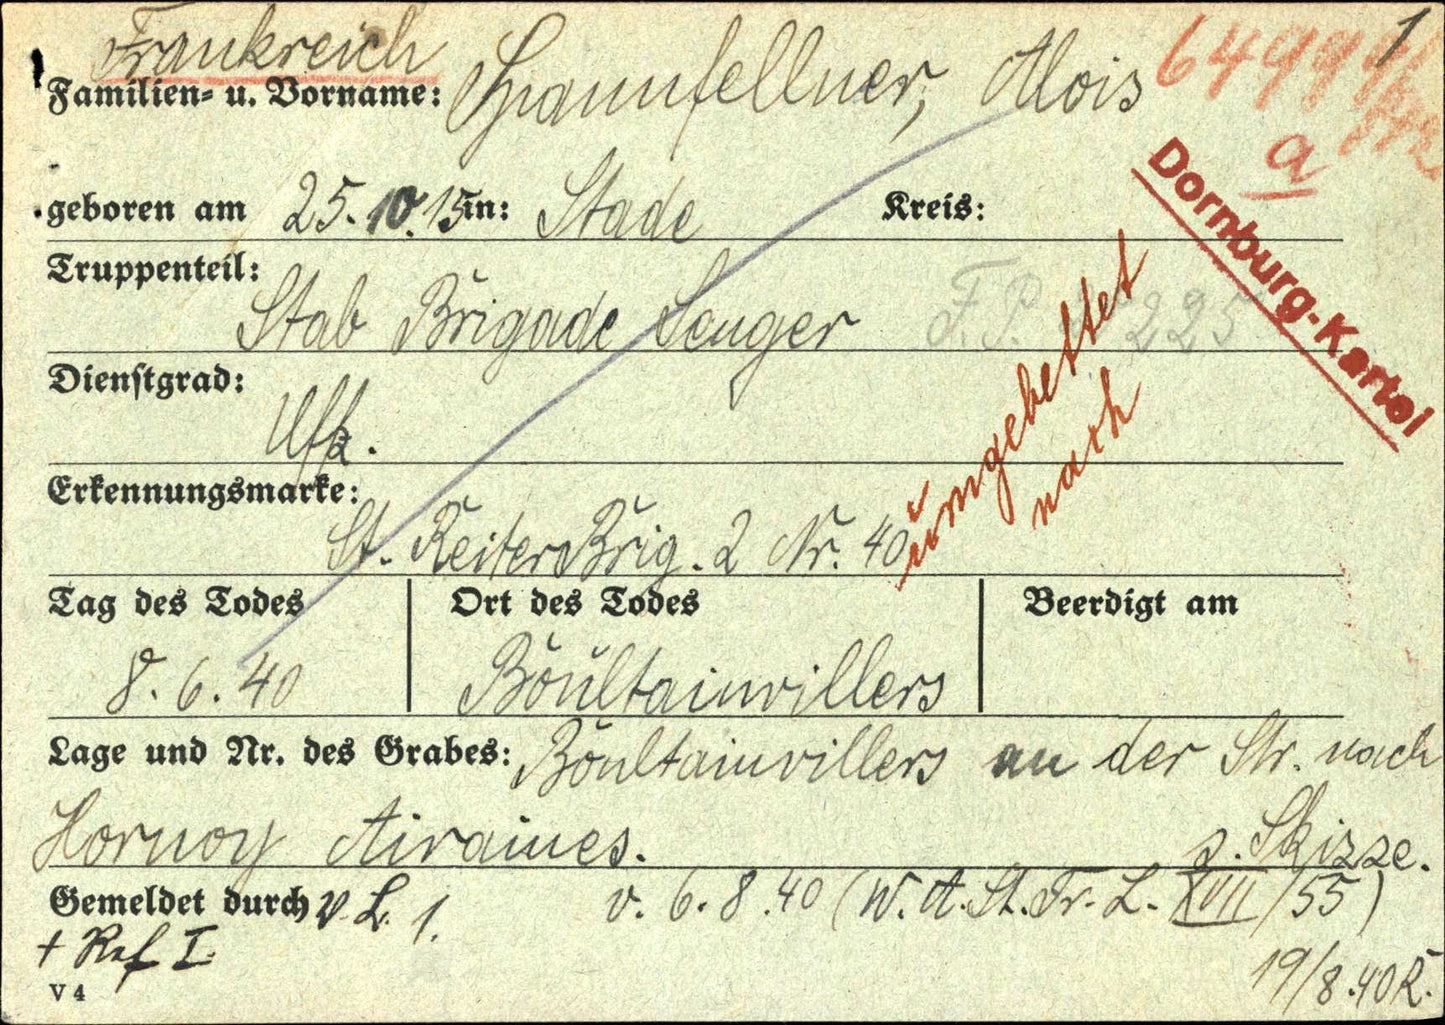 Frankreich
Familien- u. Vorname: Spannfellner, Alois
1
a
Dornburg-Kartei
geboren am 25.10.15 in: Stade Kreis:
Truppenteil:
Stab Brigade Senger F.P. 225
Dienstgrad:
Uffz.
umgebettet
nach
Erkennungsmarke:
St. Reiter Brig. 2 Nr. 40
Tag des Todes Ort des Todes Beerdigt am
8.6.40 Boultainvillers
Lage und Nr. des Grabes: Boultainvillers an der Str. nach
Hornoy Airaines. s. Skizze.
Gemeldet durch V. L. 1. v. 6.8.40 (W.A.St. Fr. L. XVII/55)
+ Ref I.
19/8.40 R.
V 4